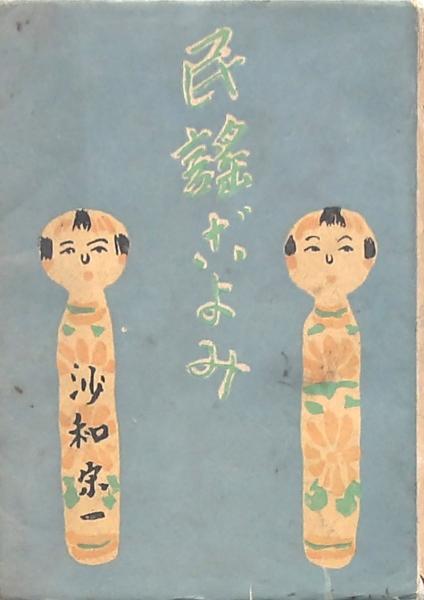 民謡ごよみ
沙和宗一